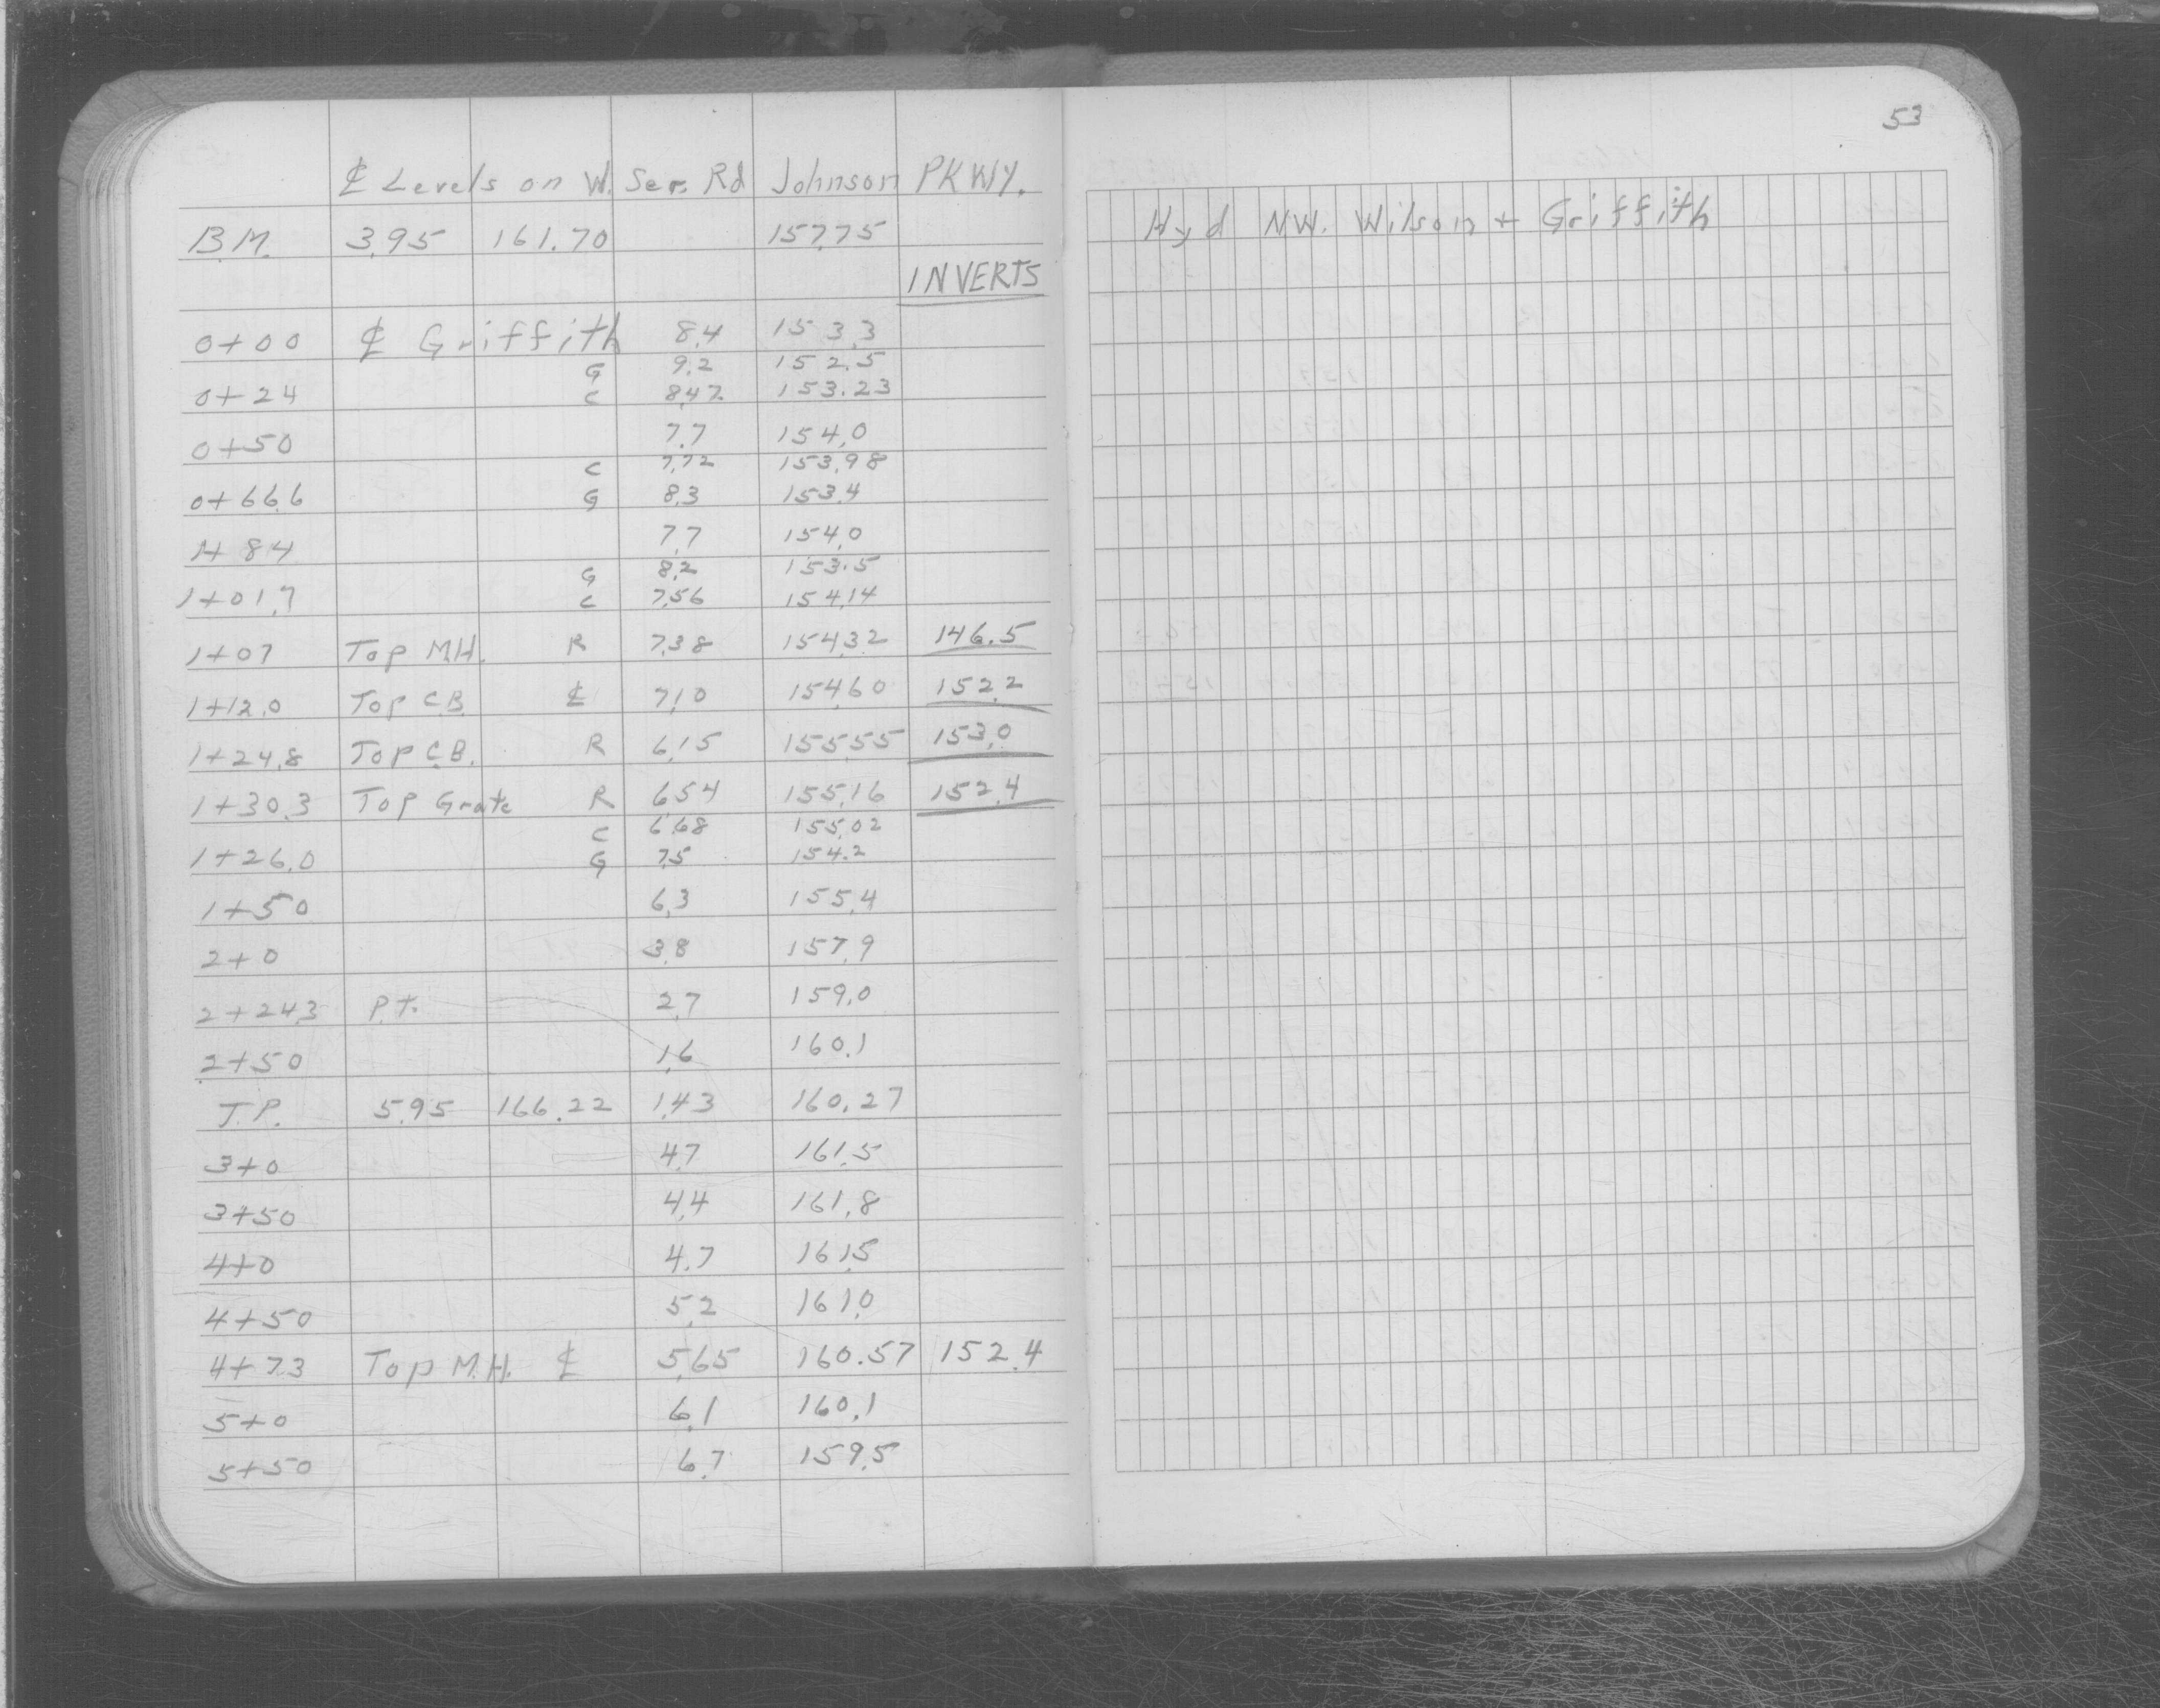 53
℄ Levels on W. Ser. Rd Johnson PKWY.
B.M. 3.95 161.70 157.75
INVERTS
0+00 ℄ Griffith 8.4 153.3
G 9.2 152.5
0+24 C 8.47 153.23
0+50 7.7 154.0
C 7.72 153.98
0+66.6 G 8.3 153.4
84 7.7 154.0
G 8.2 153.5
1+01.7 C 7.56 154.14
1+07 Top M.H. R 7.38 154.32 146.5
1+12.0 Top C.B. ℄ 7.10 154.60 152.2
1+24.8 Top C.B. R 6.15 155.55 153.0
1+30.3 Top Grate R 6.54 155.16 152.4
C 6.68 155.02
1+26.0 G 7.5 154.2
1+50 6.3 155.4
2+0 3.8 157.9
2+24.3 P.T. 2.7 159.0
2+50 1.6 160.1
T.P. 5.95 166.22 1.43 160.27
3+0 4.7 161.5
3+50 4.4 161.8
4+0 4.7 161.5
4+50 5.2 161.0
4+73 Top M.H. ℄ 5.65 160.57 152.4
5+0 6.1 160.1
5+50 6.7 159.5
Hyd NW. Wilson + Griffith